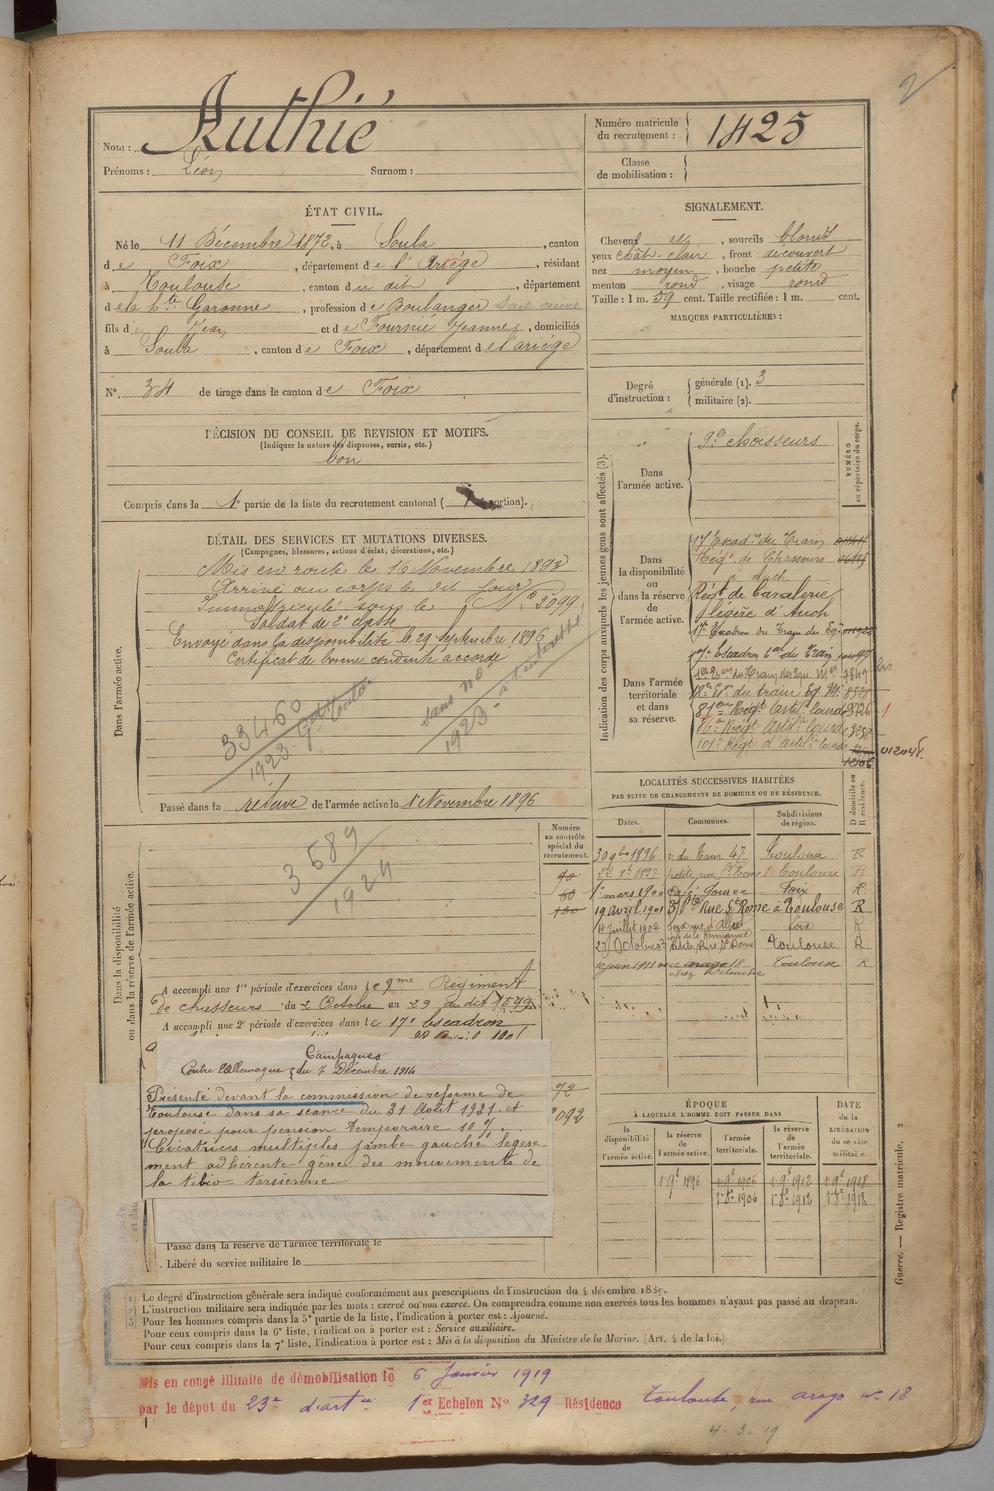 2
Nom : Authié
Prénoms : Léon Surnom :
Numéro matricule du recrutement : 1425
Classe de mobilisation :
ÉTAT CIVIL.
Né le 11 Décembre 1872, à Soula, canton
de Foix, département de l'Ariége, résidant
à Toulouse, canton du dit, département
de la hte Garonne, profession de Boulanger
fils de Jean et de Fournié Jeanne, domiciliés
à Soula, canton de Foix, département de l'ariége
N° 34 de tirage dans le canton de Foix
DÉCISION DU CONSEIL DE REVISION ET MOTIFS.
(Indiquer la nature des dispenses, sursis, etc.)
bon
Compris dans la 1e partie de la liste du recrutement cantonal ( portion).
DÉTAIL DES SERVICES ET MUTATIONS DIVERSES.
(Campagnes, blessures, actions d'éclat, décorations, etc.)
Dans l'armée active.
Mis en route le 10 Novembre 1893
Arrivé au corps le dit jour
Immatriculé sous le N° 3099
Soldat de 2e classe
Envoyé dans la disponibilité le 29 Septembre 1896
Certificat de bonne conduite accordé
33460
1923
sans no
1923
Passé dans la réserve de l'armée active le 1 Novembre 1896
SIGNALEMENT.
Cheveux et, sourcils blonds
yeux chât. clair, front découvert
nez moyen, bouche petite
menton rond, visage rond
Taille : 1 m. 59 cent. Taille rectifiée : 1 m. cent.
MARQUES PARTICULIÈRES :
Degré d'instruction : générale (1). 3
militaire (2).
Indication des corps auxquels les jeunes gens sont affectés (3).
NUMÉRO au répertoire du corps.
Dans l'armée active.
9e chasseurs
Dans la disponibilité ou dans la réserve de l'armée active.
17 Escad. du Train
Régt de Chasseurs
à Auch
Régt de Cavalerie
légère d'Auch
17e Escadron du Train des Eq.
Dans l'armée territoriale et dans sa réserve.
17e Escadron tal du Train
7849
18e Eon du train Eq. Mres 8528
81eme Régt Artil. lourde 9726
Régt Artil. lourde
101e Régt d'Artil. lourde
12106
01204
LOCALITÉS SUCCESSIVES HABITÉES
PAR SUITE DE CHANGEMENTS DE DOMICILE OU DE RÉSIDENCE.
Dates. Communes. Subdivisions de région. D domicile ou R résidence.
30 9bre 1896 r. du Taur 47 Toulouse R
petite rue St Rome Toulouse R
1er mars 1900 Café Foix R
19 avril 1901 Pte Rue St Rome à Toulouse R
4 juillet 1902 Foix R
Petite Rue St Rome Toulouse R
10 juin 1911 rue arago 18 Toulouse R
Numéro au contrôle spécial du recrutement.
Dans la disponibilité ou dans la réserve de l'armée active.
3589
1924
A accompli une 1re période d'exercices dans le 9eme Régiment
de chasseurs du 2 Octobre au 29 du dit 1899
A accompli une 2e période d'exercices dans le 17e Escadron
Campagnes
Contre l'Allemagne du 7 Décembre 1914
Présenté devant la commission de réforme de
Toulouse dans sa séance du 31 Août 1921 et
proposé pour pension temporaire 10 %.
Cicatrices multiples jambe gauche légère-
ment adhérente gêne des mouvements de
la tibio-tarsienne
72
092
Passé dans la réserve de l'armée territoriale le
Libéré du service militaire le
ÉPOQUE
À LAQUELLE L'HOMME DOIT PASSER DANS
la disponibilité de l'armée active. la réserve de l'armée active. l'armée territoriale. la réserve de l'armée territoriale. DATE de la LIBÉRATION du service militaire.
1er 9e 1896 1er 9e 1906 1er 9e 1912 1er 9e 1918
1er 8e 1906 1er 8e 1912 1er 8e 1918
Guerre. — Registre matricule, 2
(1) Le degré d'instruction générale sera indiqué conformément aux prescriptions de l'instruction du 4 décembre 1889.
(2) L'instruction militaire sera indiquée par les mots : exercé ou non exercé. On comprendra comme non exercés tous les hommes n'ayant pas passé au drapeau.
(3) Pour les hommes compris dans la 5e partie de la liste, l'indication à porter est : Ajourné.
Pour ceux compris dans la 6e liste, l'indication à porter est : Service auxiliaire.
Pour ceux compris dans la 7e liste, l'indication à porter est : Mis à la disposition du Ministre de la Marine. (Art. 4 de la loi.)
Mis en congé illimité de démobilisation le 6 Janvier 1919
par le dépôt du 23e d'artie 1er Echelon N° 329 Résidence Toulouse, rue arago n° 18
4-3-19